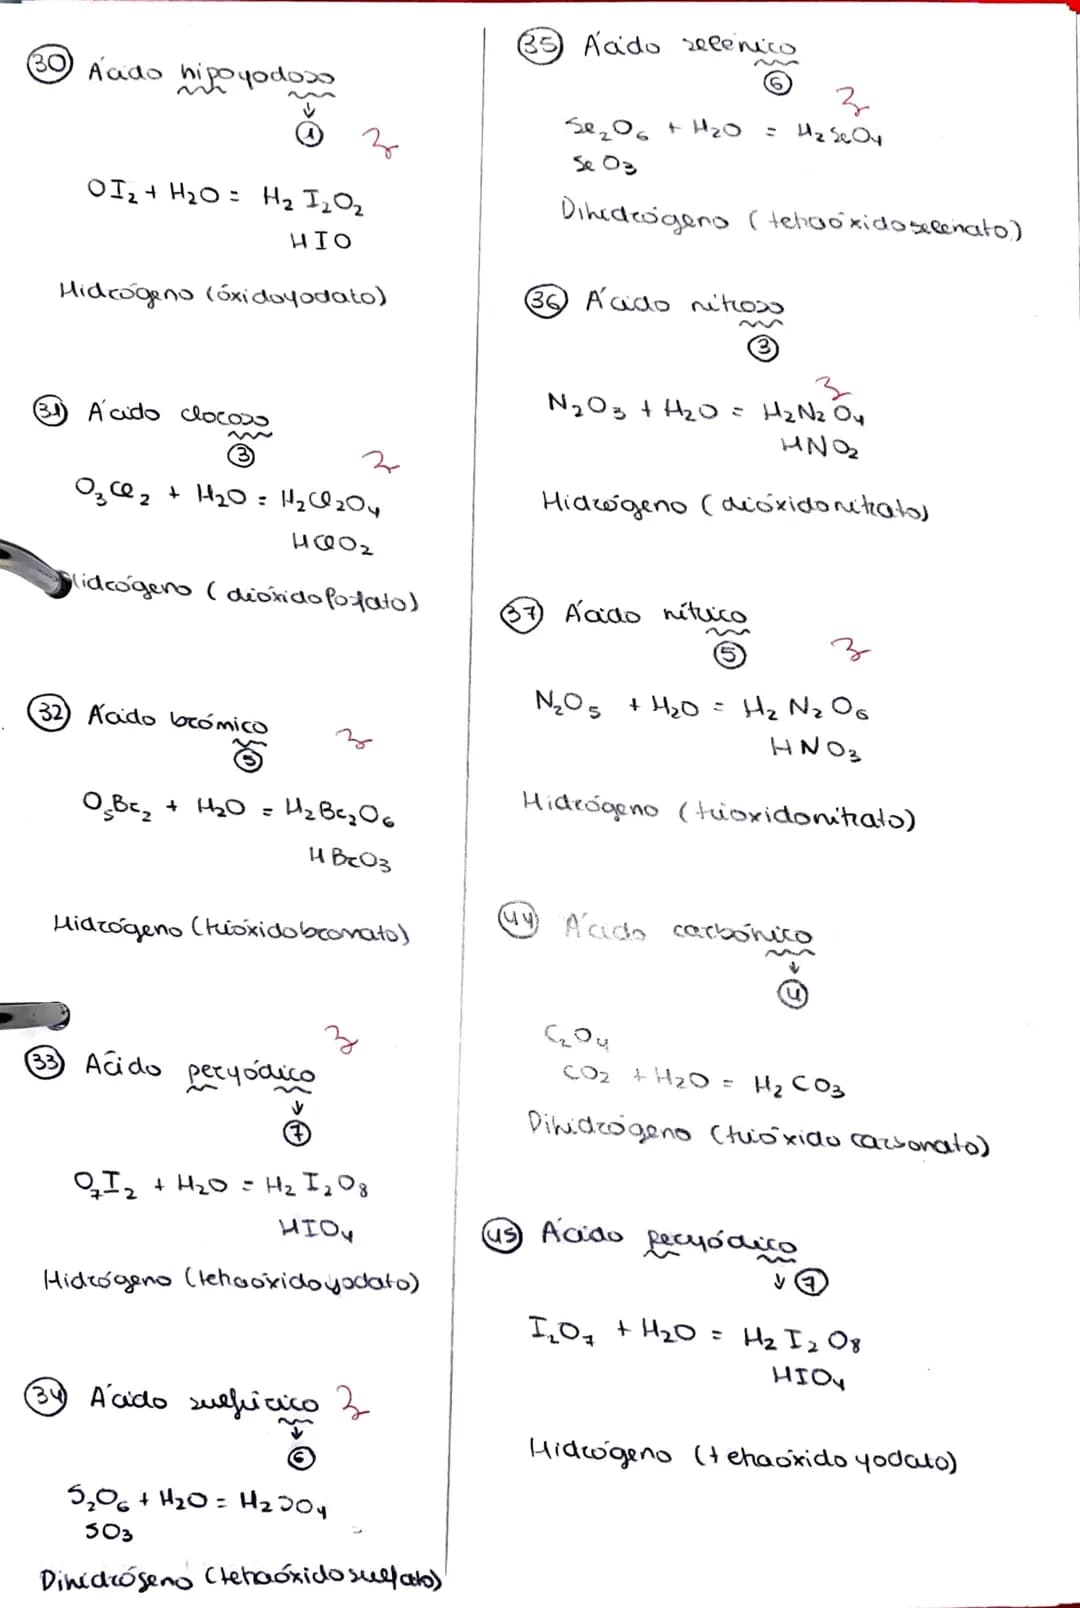 30 Ácido hipoyodoso
1
OI2 + H2O = H2 I2O2
HIO
Hidrógeno (óxidoyodato)
31 Ácido cloroso
3
O3Cl2 + H2O = H2Cl2O4
HClO2
Hidrógeno (dioxido
32 Ácido brómico
5
O5Br2 + H2O = H2Br2O6
HBrO3
Hidrógeno (trióxidobromato)
33 Ácido peryódico
7
O7I2 + H2O = H2 I2O8
HIO4
Hidrógeno (tetraoxidoyodato)
34 Ácido sulfúrico
6
S2O6 + H2O = H2SO4
SO3
Dihidrógeno (tetraóxidosulfato)
35 Ácido selénico
6
Se2O6 + H2O = H2SeO4
SeO3
Dihidrógeno (tetraóxidoselenato)
36 Ácido nitroso
3
N2O3 + H2O = H2N2O4
HNO2
Hidrógeno (dióxidonitrato)
37 Ácido nítrico
5
N2O5 + H2O = H2 N2 O6
HNO3
Hidrógeno (trioxidonitrato)
44 Ácido carbónico
4
C2O4
CO2 + H2O = H2 CO3
Dihidrógeno (trióxido carbonato)
45 Ácido peryódico
7
I2O7 + H2O = H2 I2 O8
HIO4
Hidrógeno (tetraóxido yodato)